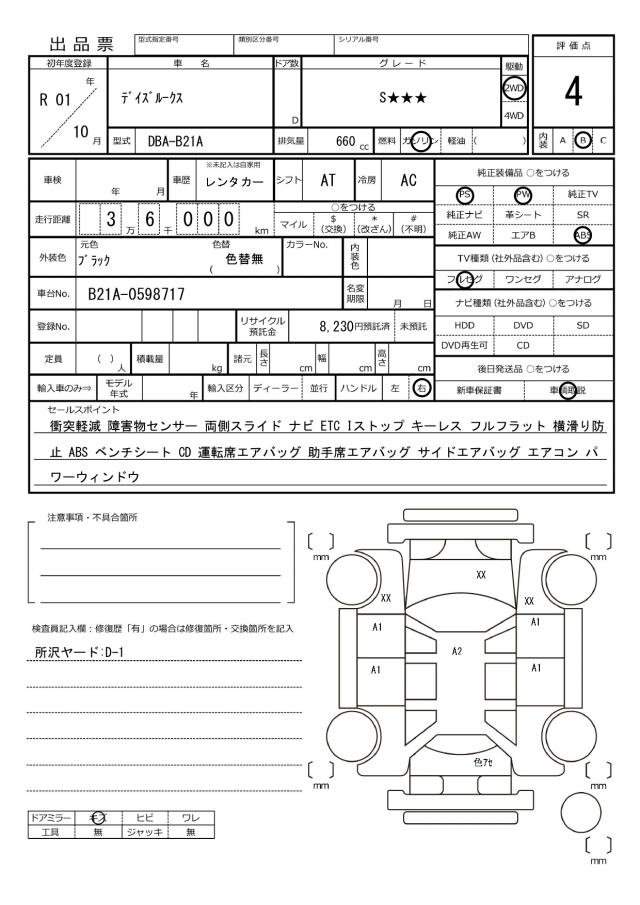 出品票
型式指定番号 類別区分番号 シリアル番号
初年度登録 車名 ドア数 グレード 駆動 評価点
R 01 年 ﾃﾞｲｽﾞﾙｰｸｽ D S★★★ 2WD 4
10 月 4WD
型式 DBA-B21A 排気量 660 cc 燃料 ガソリン 軽油 ( ) 内装 A B C
車検 年 月 車歴 ※未記入は自家用 レンタカー シフト AT 冷房 AC
純正装備品 ○をつける
PS PW 純正TV
走行距離 3 万 6 千 0 0 0 km ○をつける
マイル $(交換) *(改ざん) #(不明)
純正ナビ 革シート SR
純正AW エアB ABS
外装色 元色 ﾌﾞﾗｯｸ 色替 ( 色替無 ) カラーNo. 内装色
TV種類(社外品含む) ○をつける
フルセグ ワンセグ アナログ
車台No. B21A-0598717 名変期限 月 日
ナビ種類(社外品含む) ○をつける
登録No. リサイクル預託金 8,230円預託済 未預託
HDD DVD SD
DVD再生可 CD
定員 ( ) 人 積載量 kg 諸元 長さ cm 幅 cm 高さ cm
後日発送品 ○をつける
輸入車のみ⇒ モデル年式 年 輸入区分 ディーラー 並行 ハンドル 左 右
新車保証書 車輌取説
セールスポイント
衝突軽減 障害物センサー 両側スライド ナビ ETC Iストップ キーレス フルフラット 横滑り防
止 ABS ベンチシート CD 運転席エアバッグ 助手席エアバッグ サイドエアバッグ エアコン パ
ワーウィンドウ
注意事項・不具合箇所
検査員記入欄：修復歴「有」の場合は修復箇所・交換箇所を記入
所沢ヤード:D-1
ドアミラー キズ ヒビ ワレ
工具 無 ジャッキ 無
mm mm
XX
XX XX
A1 A1
A2
A1 A1
色ｱｾ
mm mm
mm